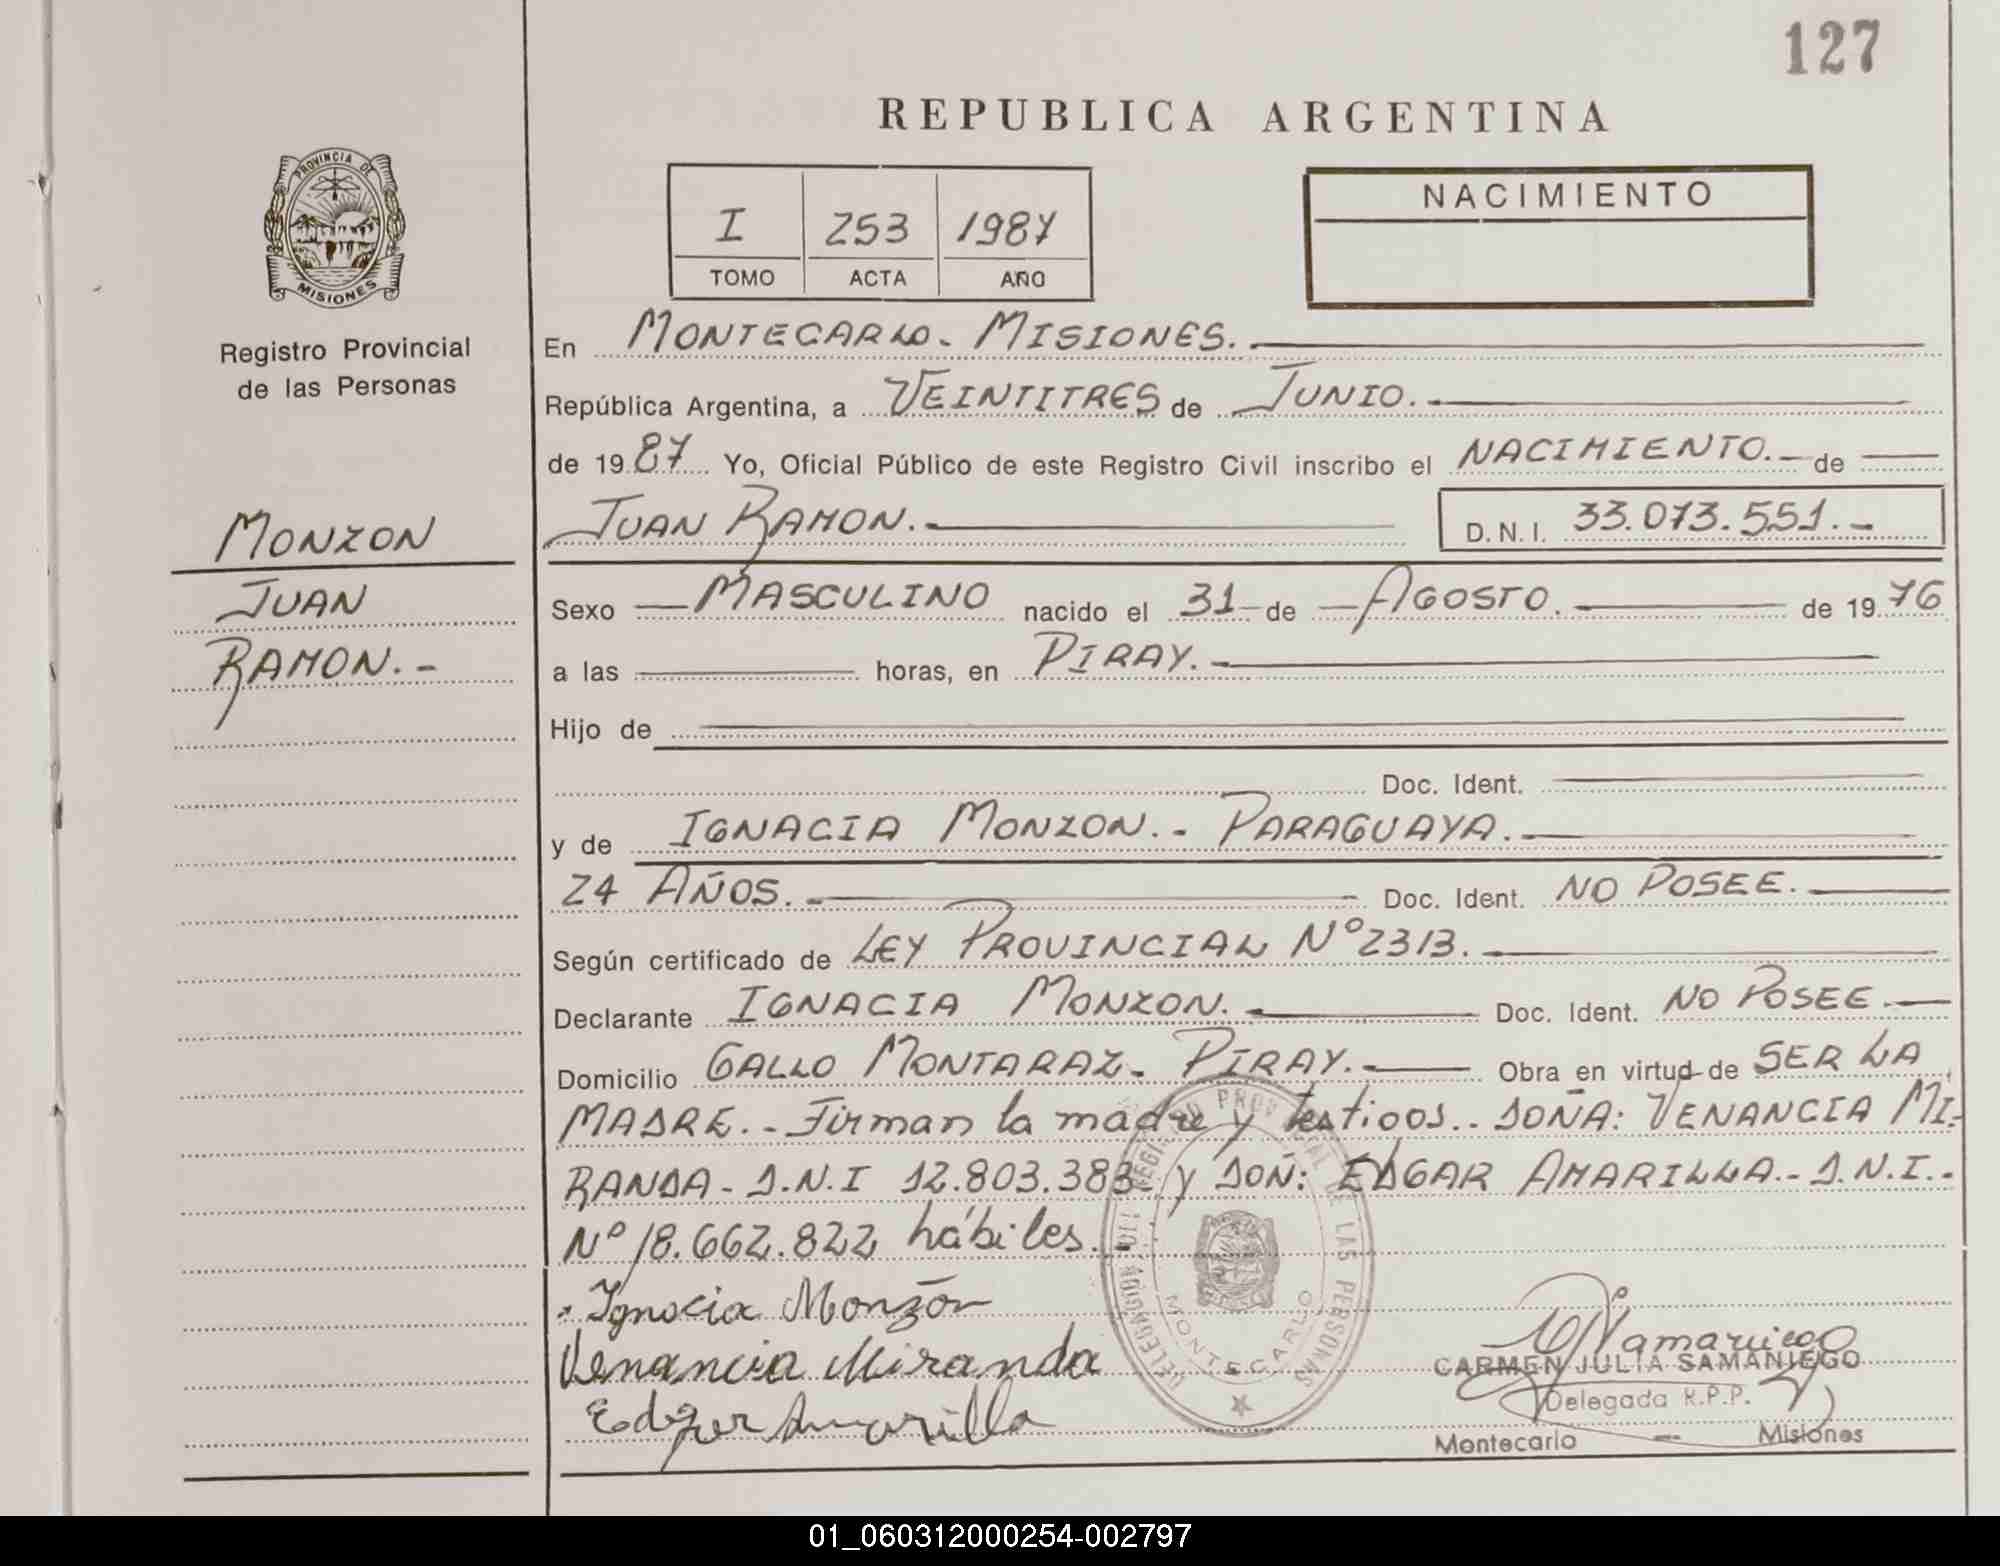 127
REPUBLICA ARGENTINA
PROVINCIA DE
MISIONES
Registro Provincial
de las Personas
MONZON
JUAN
RAMON.-
I 253 1987
TOMO ACTA AÑO
NACIMIENTO
En MONTECARLO. MISIONES.
República Argentina, a VEINTITRES de JUNIO.
de 1987 Yo, Oficial Público de este Registro Civil inscribo el NACIMIENTO. de
JUAN RAMON. D.N.I. 33.073.551.-
Sexo MASCULINO nacido el 31 de AGOSTO. de 1976
a las horas, en PIRAY.
Hijo de
Doc. Ident.
y de IGNACIA MONZON.- PARAGUAYA.
24 AÑOS. Doc. Ident. NO POSEE.
Según certificado de LEY PROVINCIAL Nº 2313.
Declarante IGNACIA MONZON. Doc. Ident. NO POSEE.
Domicilio GALLO MONTARAZ. PIRAY. Obra en virtud de SER LA
MADRE.- Firman la madre y testigos.. DOÑA: VENANCIA MI-
RANDA - D.N.I 12.803.383 y DON: EDGAR AMARILLA.- D.N.I.-
Nº 18.662.822 hábiles.-
Ignacia Monzón
Venancia Miranda
Edgar Amarilla
REGISTRO PROVINCIAL DE LAS PERSONAS
DELEGACION
MONTECARLO
CARMEN JULIA SAMANIEGO
Delegada R.P.P.
Montecarlo - Misiones
01_060312000254-002797